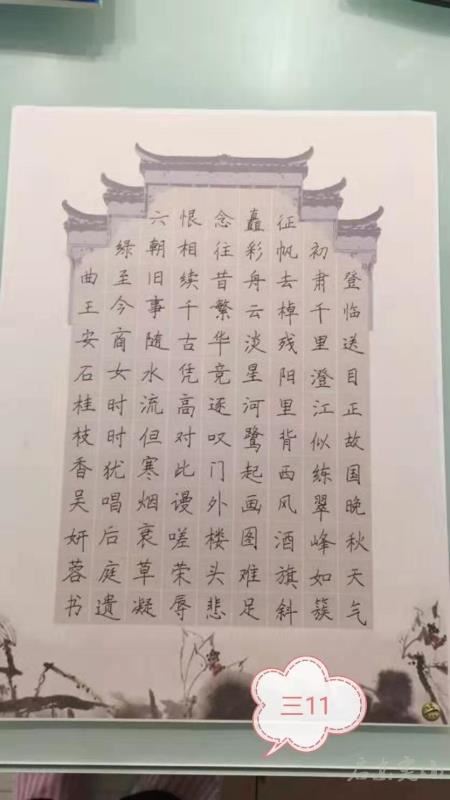 登临送目正故国晚秋天气
初肃千里澄江似练翠峰如簇
征帆去棹残阳里背西风酒旗斜
矗彩舟云淡星河鹭起画图难足
念往昔繁华竞逐叹门外楼头悲
恨相续千古凭高对此谩嗟荣辱
六朝旧事随水流但寒烟衰草凝
绿至今商女时时犹唱后庭遗
曲王安石桂枝香吴妍蓉书
三11